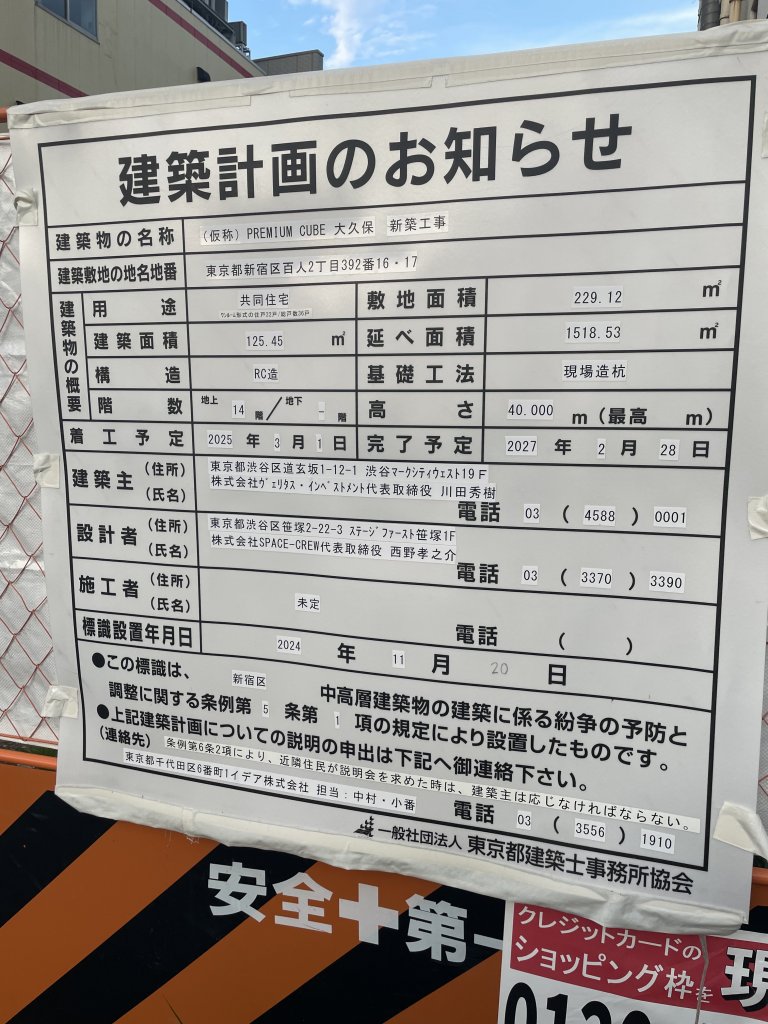 建築計画のお知らせ
建築物の名称 (仮称) PREMIUM CUBE 大久保 新築工事
建築敷地の地名地番 東京都新宿区百人2丁目392番16・17
建築物の概要
用途 共同住宅 ワンルーム形式の住戸22戸/総戸数36戸 敷地面積 229.12 ㎡
建築面積 125.45 ㎡ 延べ面積 1518.53 ㎡
構造 RC造 基礎工法 現場造杭
階数 地上 14 階/地下 － 階 高さ 40.000 m(最高 m)
着工予定 2025 年 3 月 1 日 完了予定 2027 年 2 月 28 日
建築主 (住所) 東京都渋谷区道玄坂1-12-1 渋谷マークシティウェスト19F
(氏名) 株式会社ヴェリタス・インベストメント代表取締役 川田秀樹
電話 03 ( 4588 ) 0001
設計者 (住所) 東京都渋谷区笹塚2-22-3 ステージファースト笹塚1F
(氏名) 株式会社SPACE-CREW代表取締役 西野孝之介
電話 03 ( 3370 ) 3390
施工者 (住所)
(氏名) 未定
電話 ( )
標識設置年月日 2024 年 11 月 20 日
●この標識は、 新宿区 中高層建築物の建築に係る紛争の予防と
調整に関する条例第 5 条第 1 項の規定により設置したものです。
●上記建築計画についての説明の申出は下記へ御連絡下さい。
(連絡先) 条例第6条2項により、近隣住民が説明会を求めた時は、建築主は応じなければならない。
東京都千代田区6番町1イデア株式会社 担当：中村・小番 電話 03 ( 3556 ) 1910
一般社団法人 東京都建築士事務所協会
安全✚第一
クレジットカードの
ショッピング枠を 現